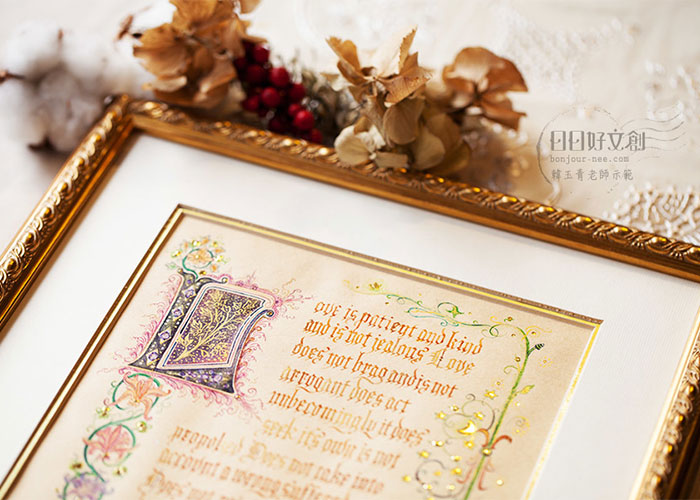 日日好文創
bonjour-nee.com
韓玉青老師示範
Love is patient and kind
and is not jealous Love
does not brag and is not
arrogant does act
unbecomingly it does
seek its own is not
propoled Does not take into
account a wrong suffered